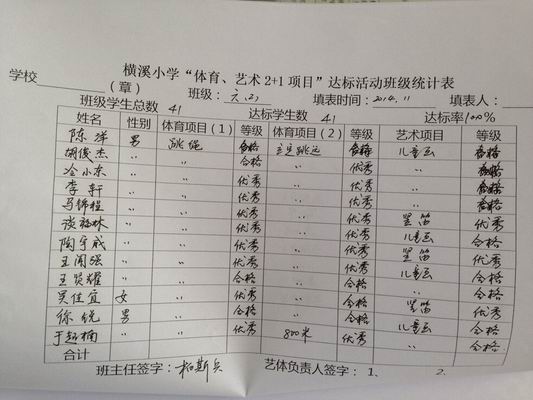 横溪小学“体育、艺术2+1项目”达标活动班级统计表
学校 (章) 班级: 六.(2) 填表时间: 2014.11 填表人:
班级学生总数 41 达标学生数 41 达标率100%
姓名 性别 体育项目(1) 等级 体育项目(2) 等级 艺术项目 等级
陈洋 男 跳绳 合格 立定跳远 合格 儿童画 合格
胡俊杰 〃 〃 合格 〃 合格 〃 合格
冷小东 〃 〃 优秀 〃 优秀 〃 合格
李轩 〃 〃 优秀 〃 优秀 〃 合格
马锦程 〃 〃 优秀 〃 优秀 〃 合格
谈裕林 〃 〃 优秀 〃 优秀 竖笛 优秀
陶宇成 〃 〃 优秀 〃 优秀 儿童画 合格
王闻强 〃 〃 优秀 〃 优秀 竖笛 优秀
王贤耀 〃 〃 合格 〃 合格 儿童画 合格
吴佳宜 女 〃 优秀 〃 合格 〃 合格
徐锐 男 〃 合格 〃 合格 竖笛 优秀
于 楠 〃 〃 优秀 800米 优秀 儿童画 合格
合计 合格
班主任签字: 柏斯兵 艺体负责人签字: 1、 2.